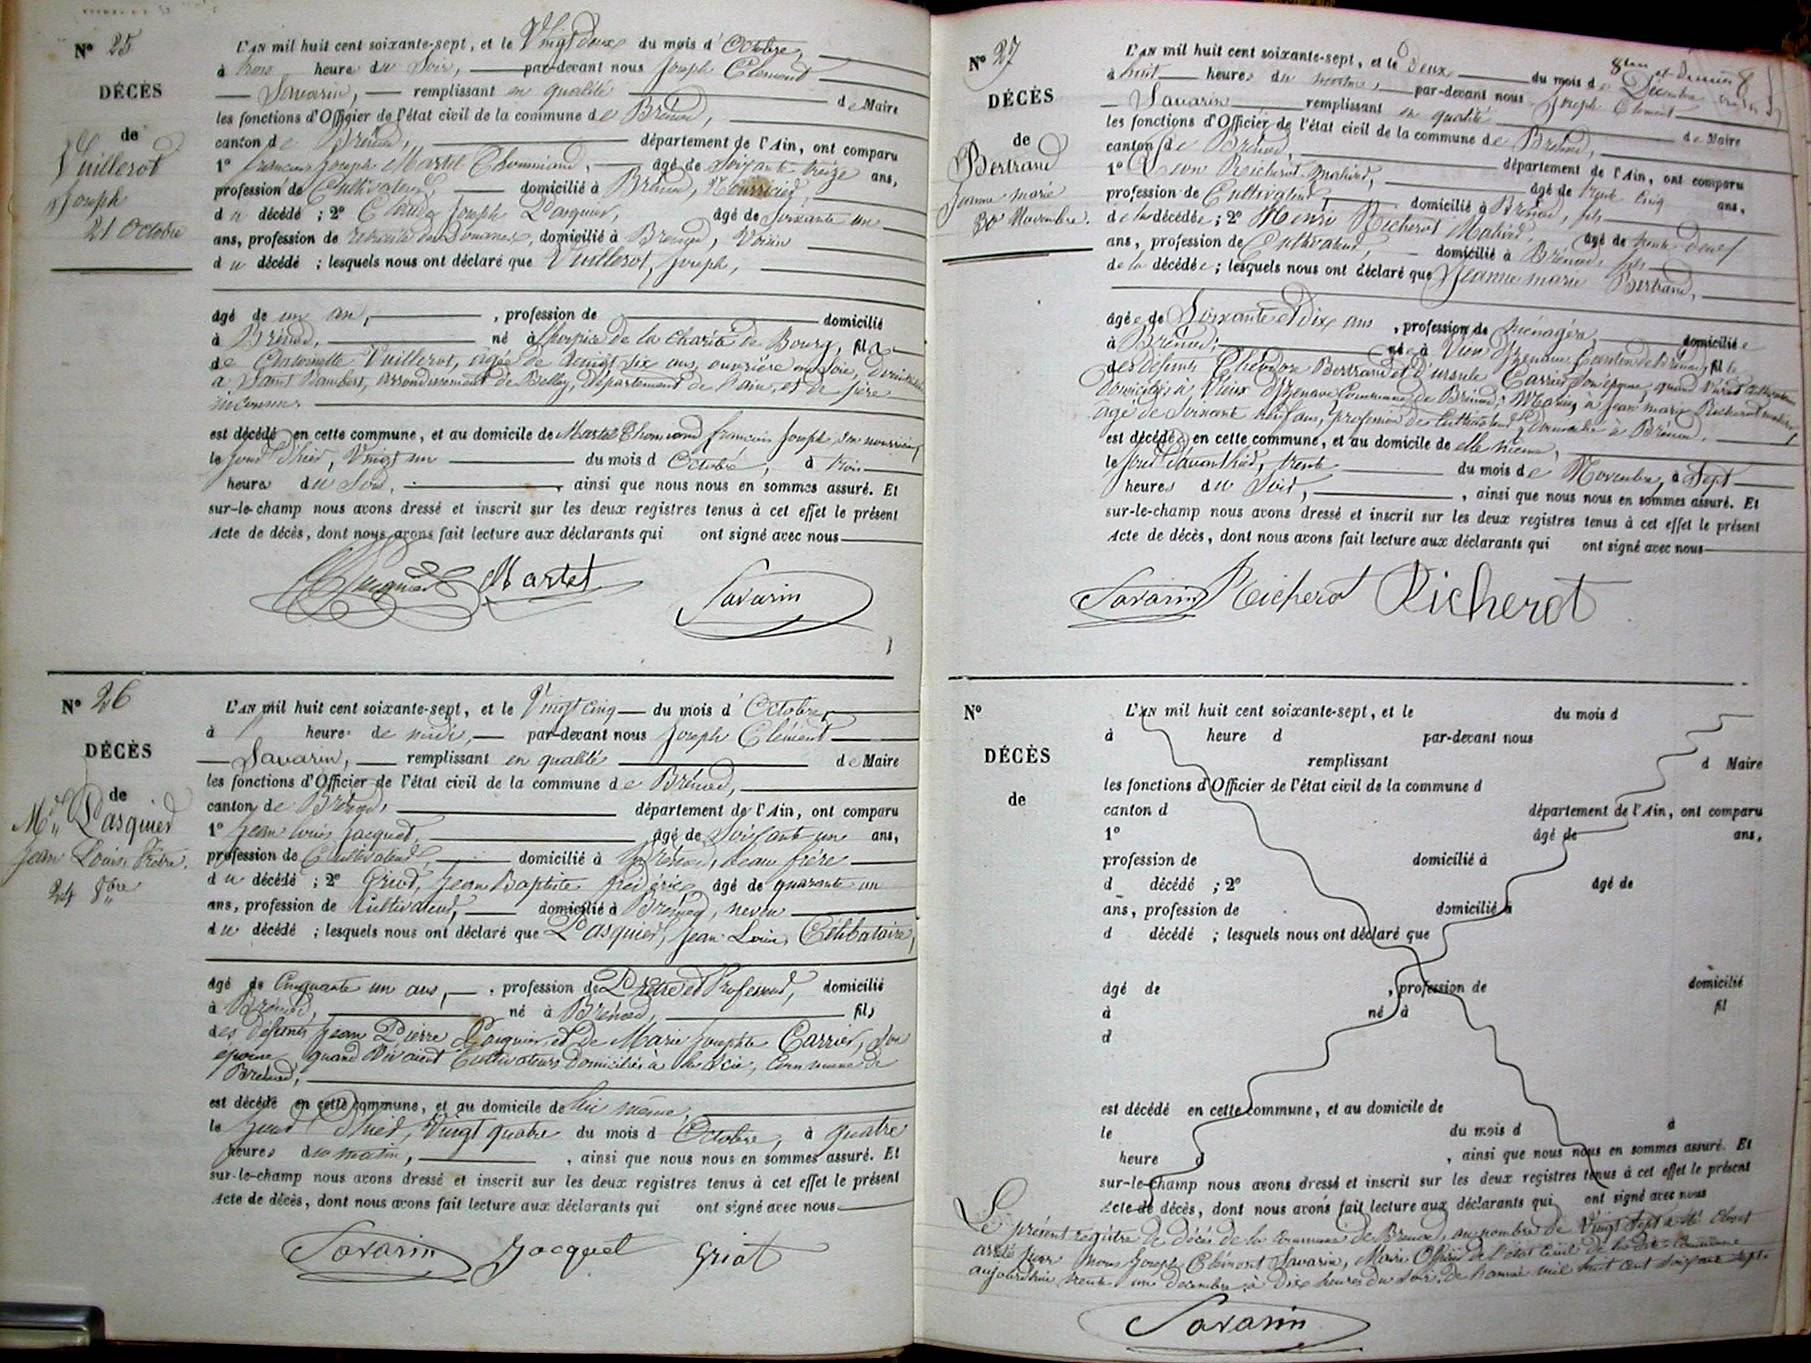 N° 25
DÉCÈS
de
Vuillerot
Joseph
21 Octobre
L'AN mil huit cent soixante-sept, et le Vingt deux du mois d'Octobre,
à trois heures du Soir, par-devant nous Joseph Clément
Savarin, remplissant en qualité de Maire
les fonctions d'Officier de l'état civil de la commune de Brénod,
canton de Brénod, département de l'Ain, ont comparu
1° françois Joseph Martel Thoumiand, âgé de soixante treize ans,
profession de Cultivateur, domicilié à Brénod, Nourricier
du décédé ; 2° Claude Joseph Pasquier, âgé de soixante un
ans, profession de retraité des Douanes, domicilié à Brénod, Voisin
du décédé ; lesquels nous ont déclaré que Vuillerot, Joseph,
âgé de un an, , profession de domicilié
à Brénod, né à l'hospice de la charité de Bourg, fils
de Antoinette Vuillerot, âgée de vingt six ans, ouvrière en soie, domiciliée
à Saint Rambert, arrondissement de Belley, département de l'ain, et de père
inconnu.
est décédé en cette commune, et au domicile de Martel françois Joseph son nourricier,
le jour d'hier, Vingt un du mois d'Octobre, à trois
heures du Soir, , ainsi que nous nous en sommes assuré. Et
sur-le-champ nous avons dressé et inscrit sur les deux registres tenus à cet effet le présent
Acte de décès, dont nous avons fait lecture aux déclarants qui ont signé avec nous
Pasquier Martel Savarin
N° 26
DÉCÈS
de
Mr Pasquier
Jean Louis Prêtre.
24 8bre
L'AN mil huit cent soixante-sept, et le Vingt cinq du mois d'Octobre,
à heure de midi, par-devant nous Joseph Clément
Savarin, remplissant en qualité de Maire
les fonctions d'Officier de l'état civil de la commune de Brénod,
canton de Brénod, département de l'Ain, ont comparu
1° Jean Louis Jacquet, âgé de soixante un ans,
profession de Cultivateur, domicilié à Brénod, beau frère
du décédé ; 2° Griot, Jean Baptiste frédéric âgé de quarante un
ans, profession de Cultivateur, domicilié à Brénod, neveu
du décédé ; lesquels nous ont déclaré que Pasquier, Jean Louis, Célibataire,
âgé de Cinquante un ans, , profession de Prêtre et Professeur, domicilié
à Brénod, né à Brénod, fils
des défunts Jean Pierre Pasquier, et de Marie Josephte Carrier, son
épouse, quand vivaient Cultivateurs domiciliés à la Scie, commune de
Brénod,
est décédé en cette commune, et au domicile de lui même,
le jour d'hier, Vingt quatre du mois d'Octobre, à quatre
heures du matin, , ainsi que nous nous en sommes assuré. Et
sur-le-champ nous avons dressé et inscrit sur les deux registres tenus à cet effet le présent
Acte de décès, dont nous avons fait lecture aux déclarants qui ont signé avec nous
Savarin Jacquet Griot
8em et dernier
N° 27
DÉCÈS
de
Bertrand
Jeanne marie
30 Novembre.
L'AN mil huit cent soixante-sept, et le Deux du mois de Décembre
à huit heures du matin, par-devant nous Joseph Clément
Savarin remplissant en qualité de Maire
les fonctions d'Officier de l'état civil de la commune de Brénod,
canton de Brénod, département de l'Ain, ont comparu
1° Léon Richerot Mathieu, âgé de trente cinq ans,
profession de Cultivateur, domicilié à Brénod, fils
de la décédée ; 2° Henri Richerot Mathieu, âgé de trente deux
ans, profession de Cultivateur, domicilié à Brénod, fils
de la décédée ; lesquels nous ont déclaré que Jeanne marie Bertrand,
âgée de Soixante et dix ans , profession de ménagère, domiciliée
à Brénod, née à Vieux d'Izenave, Canton de Brénod, fille
des défunts Bertrand et d'ursule Carrier son épouse, quand vivaient Cultivateurs
domiciliés à Vieux d'Izenave, Mariée à Jean marie Richerot mathieu,
âgé de soixante neuf ans, profession de Cultivateur, domicilié à Brénod.
est décédée en cette commune, et au domicile de elle même,
le jour d'avant hier, trente du mois de Novembre, à Sept
heures du Soir, , ainsi que nous nous en sommes assuré. Et
sur-le-champ nous avons dressé et inscrit sur les deux registres tenus à cet effet le présent
Acte de décès, dont nous avons fait lecture aux déclarants qui ont signé avec nous
Savarin Richerot Richerot
N°
DÉCÈS
de
L'AN mil huit cent soixante-sept, et le du mois d
à heure d par-devant nous
remplissant d Maire
les fonctions d'Officier de l'état civil de la commune d
canton d département de l'Ain, ont comparu
1° âgé de ans,
profession de domicilié à
d décédé ; 2° âgé de
ans, profession de domicilié à
d décédé ; lesquels nous ont déclaré que
âgé de , profession de domicilié
à né à fil
d
est décédé en cette commune, et au domicile de
le du mois d à
heure d , ainsi que nous nous en sommes assuré. Et
sur-le-champ nous avons dressé et inscrit sur les deux registres tenus à cet effet le présent
Acte de décès, dont nous avons fait lecture aux déclarants qui ont signé avec nous
Le présent registre de décès de la commune de Brénod, au nombre de Vingt Sept a été clos et
arrêté par Nous Joseph Clément Savarin, Maire Officier de l'état civil de la dite Commune
aujourd'hui trente un décembre à Dix heures du soir, de l'année mil huit cent soixante sept.
Savarin